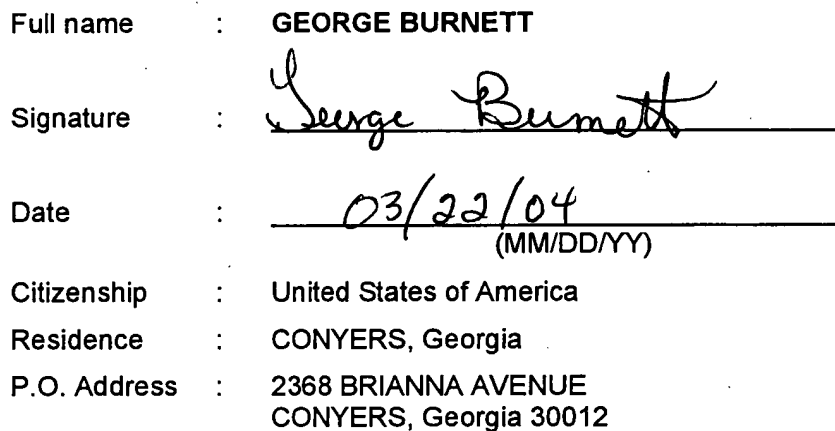 Full name : GEORGE BURNETT
Signature : George Burnett
Date : 03/22/04
(MM/DD/YY)
Citizenship : United States of America
Residence : CONYERS, Georgia
P.O. Address : 2368 BRIANNA AVENUE
CONYERS, Georgia 30012